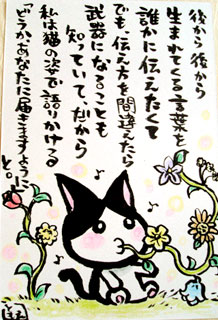 後から後から
生まれてくる言葉を
誰かに伝えたくて
でも、伝え方を間違えたら
武器になることも
知っていて、だから
私は猫の姿で語りかける
「どうか、あなたに届きますように
と。」